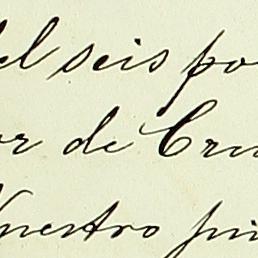 del seis po
or de Cru
Nuestro pri